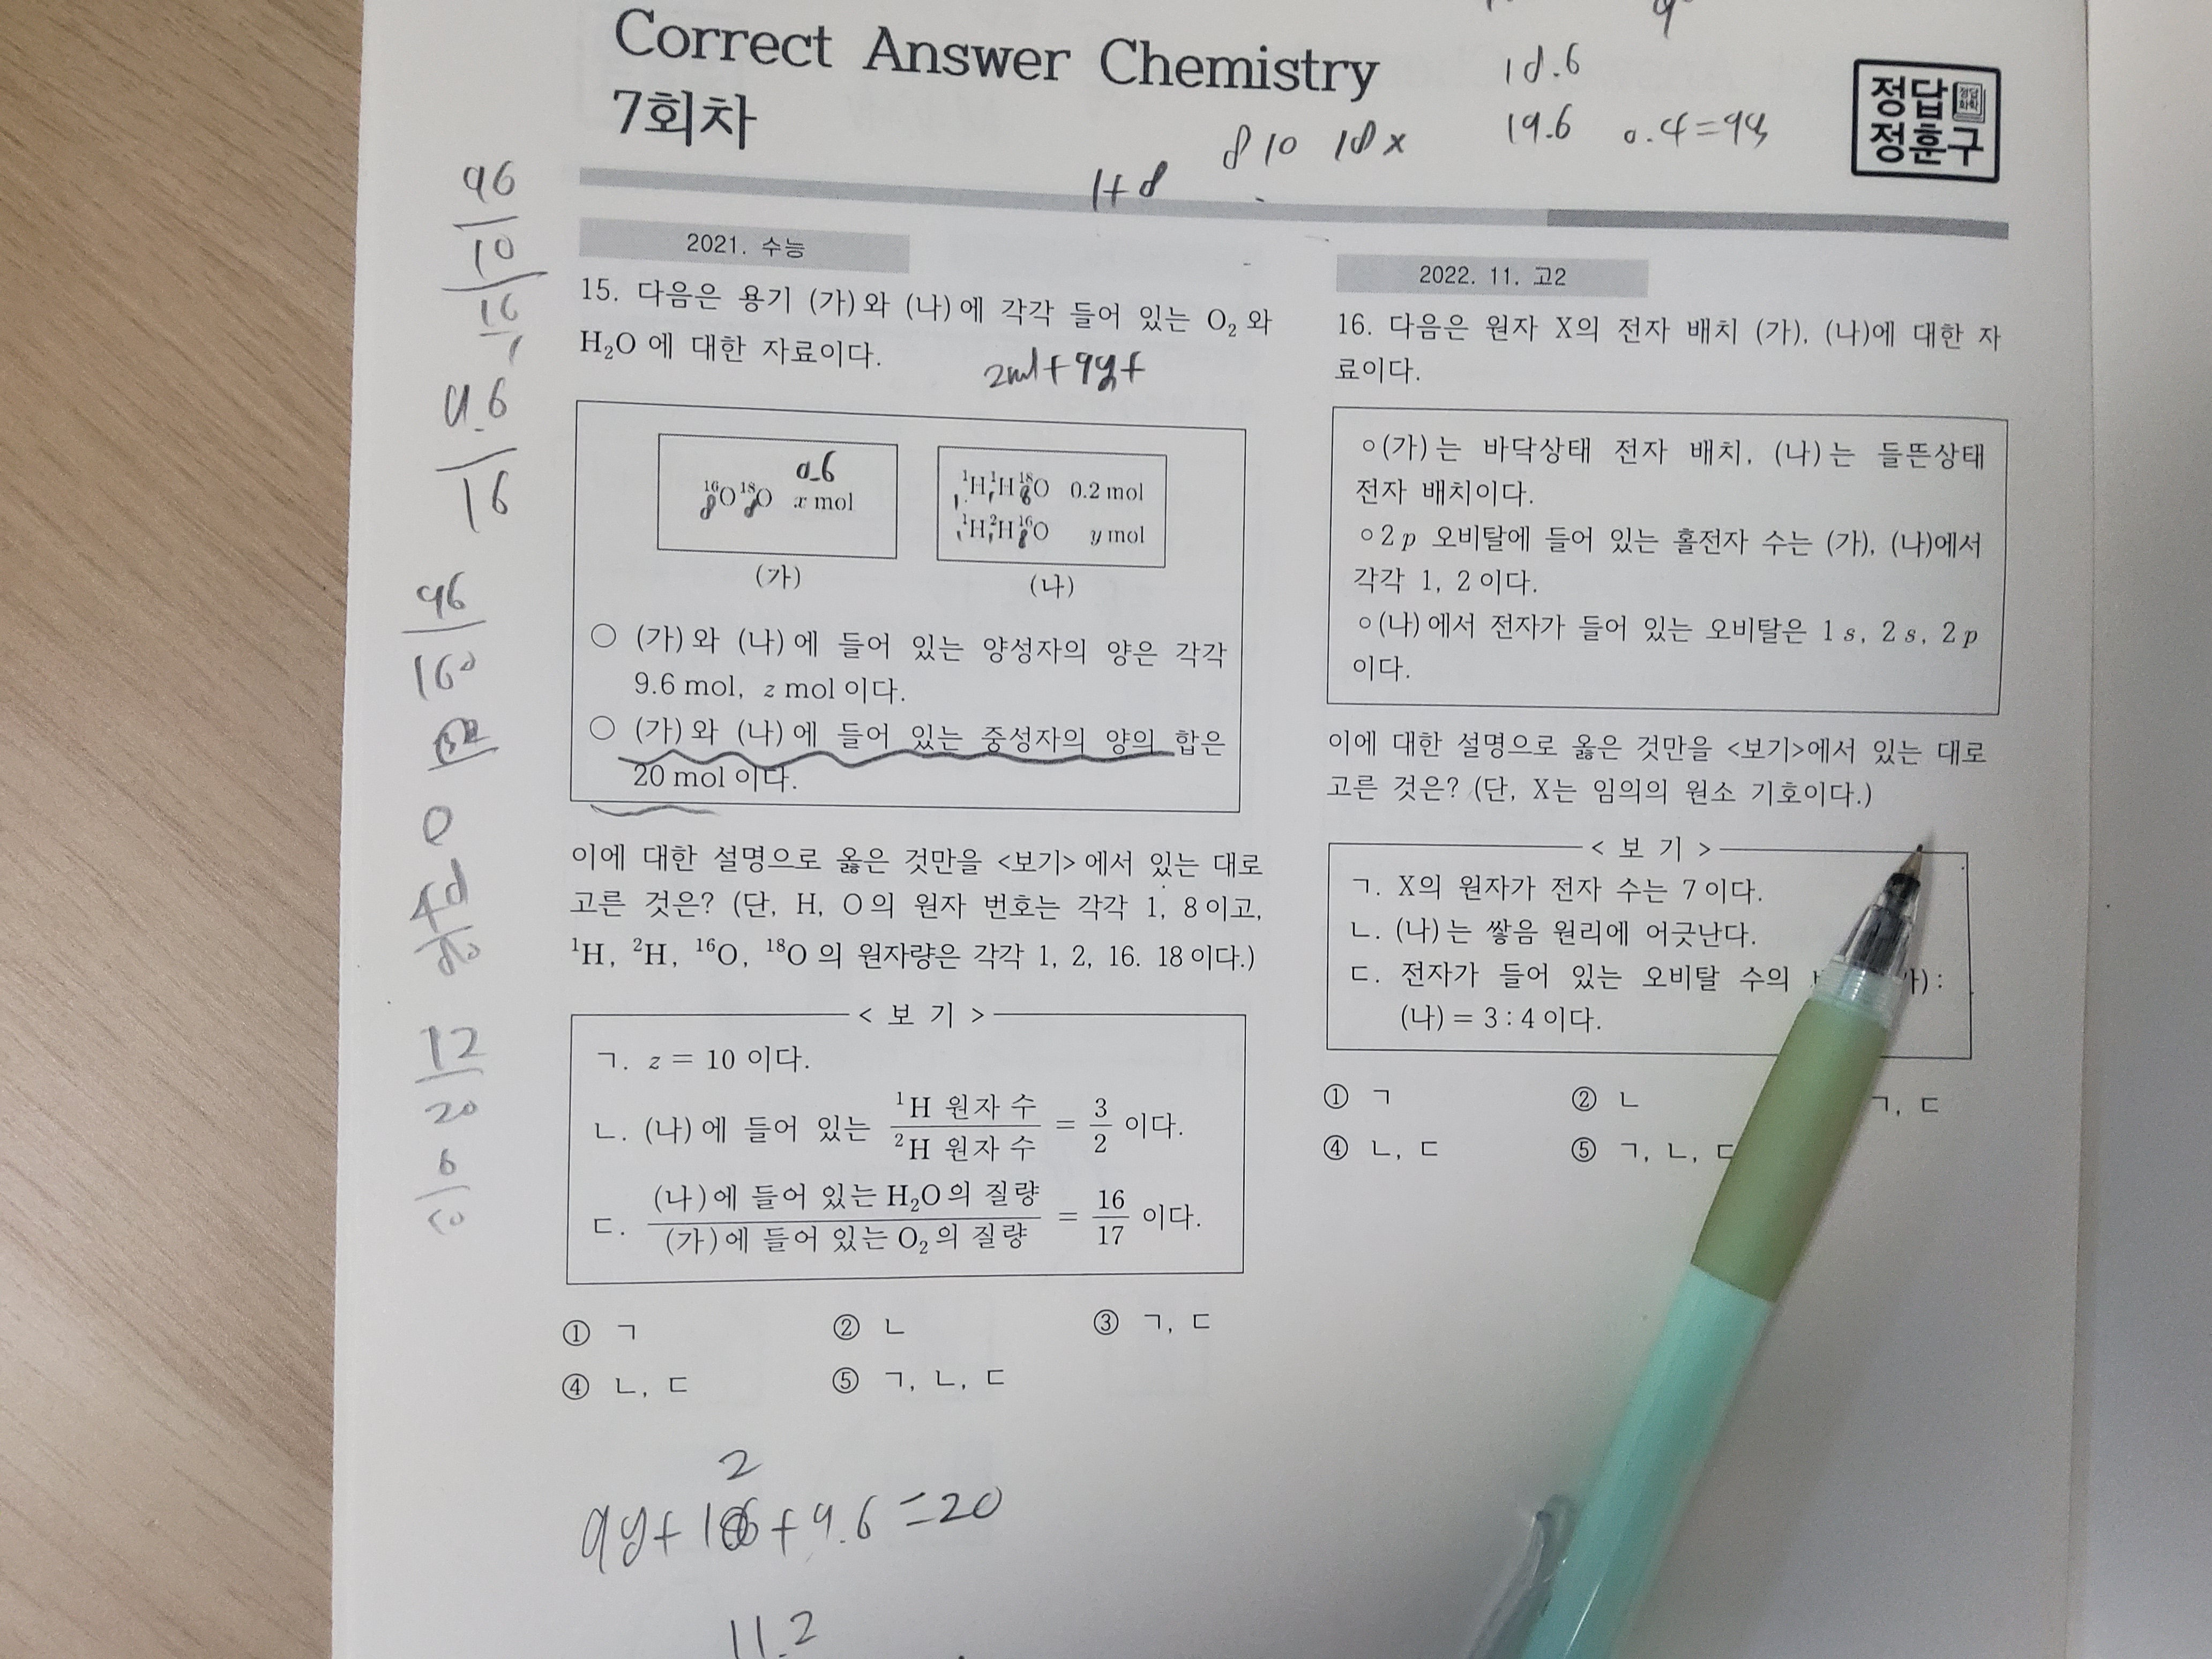 Correct Answer Chemistry
7회차
정답
정훈구
18.6
19.6
8 10 18 x
1+8
2021. 수능
15. 다음은 용기 (가)와 (나)에 각각 들어 있는 O₂와
H₂O에 대한 자료이다.
0.6
¹⁶O¹⁸O x mol
(가)
¹H¹H¹⁸O 0.2 mol
¹H²H¹⁶O y mol
(나)
○ (가)와 (나)에 들어 있는 양성자의 양은 각각
9.6 mol, z mol이다.
○ (가)와 (나)에 들어 있는 중성자의 양의 합은
20 mol이다.
이에 대한 설명으로 옳은 것만을 <보기>에서 있는 대로
고른 것은? (단, H, O의 원자 번호는 각각 1, 8이고,
¹H, ²H, ¹⁶O, ¹⁸O의 원자량은 각각 1, 2, 16. 18이다.)
< 보 기 >
ㄱ. z = 10 이다.
ㄴ. (나)에 들어 있는 ¹H 원자 수 / ²H 원자 수 = 3/2 이다.
ㄷ. (나)에 들어 있는 H₂O의 질량 / (가)에 들어 있는 O₂의 질량 = 16/17 이다.
① ㄱ ② ㄴ ③ ㄱ, ㄷ
④ ㄴ, ㄷ ⑤ ㄱ, ㄴ, ㄷ
+ 9.6 = 20
11.2
2022. 11. 고2
16. 다음은 원자 X의 전자 배치 (가), (나)에 대한 자
료이다.
○(가)는 바닥상태 전자 배치, (나)는 들뜬상태
전자 배치이다.
○2p 오비탈에 들어 있는 홀전자 수는 (가), (나)에서
각각 1, 2이다.
○(나)에서 전자가 들어 있는 오비탈은 1s, 2s, 2p
이다.
이에 대한 설명으로 옳은 것만을 <보기>에서 있는 대로
고른 것은? (단, X는 임의의 원소 기호이다.)
< 보 기 >
ㄱ. X의 원자가 전자 수는 7이다.
ㄴ. (나)는 쌓음 원리에 어긋난다.
ㄷ. 전자가 들어 있는 오비탈 수의
(나) = 3 : 4이다.
① ㄱ ② ㄴ ㄱ, ㄷ
④ ㄴ, ㄷ ⑤ ㄱ, ㄴ, ㄷ
96
10
9.6
16
96
12
20